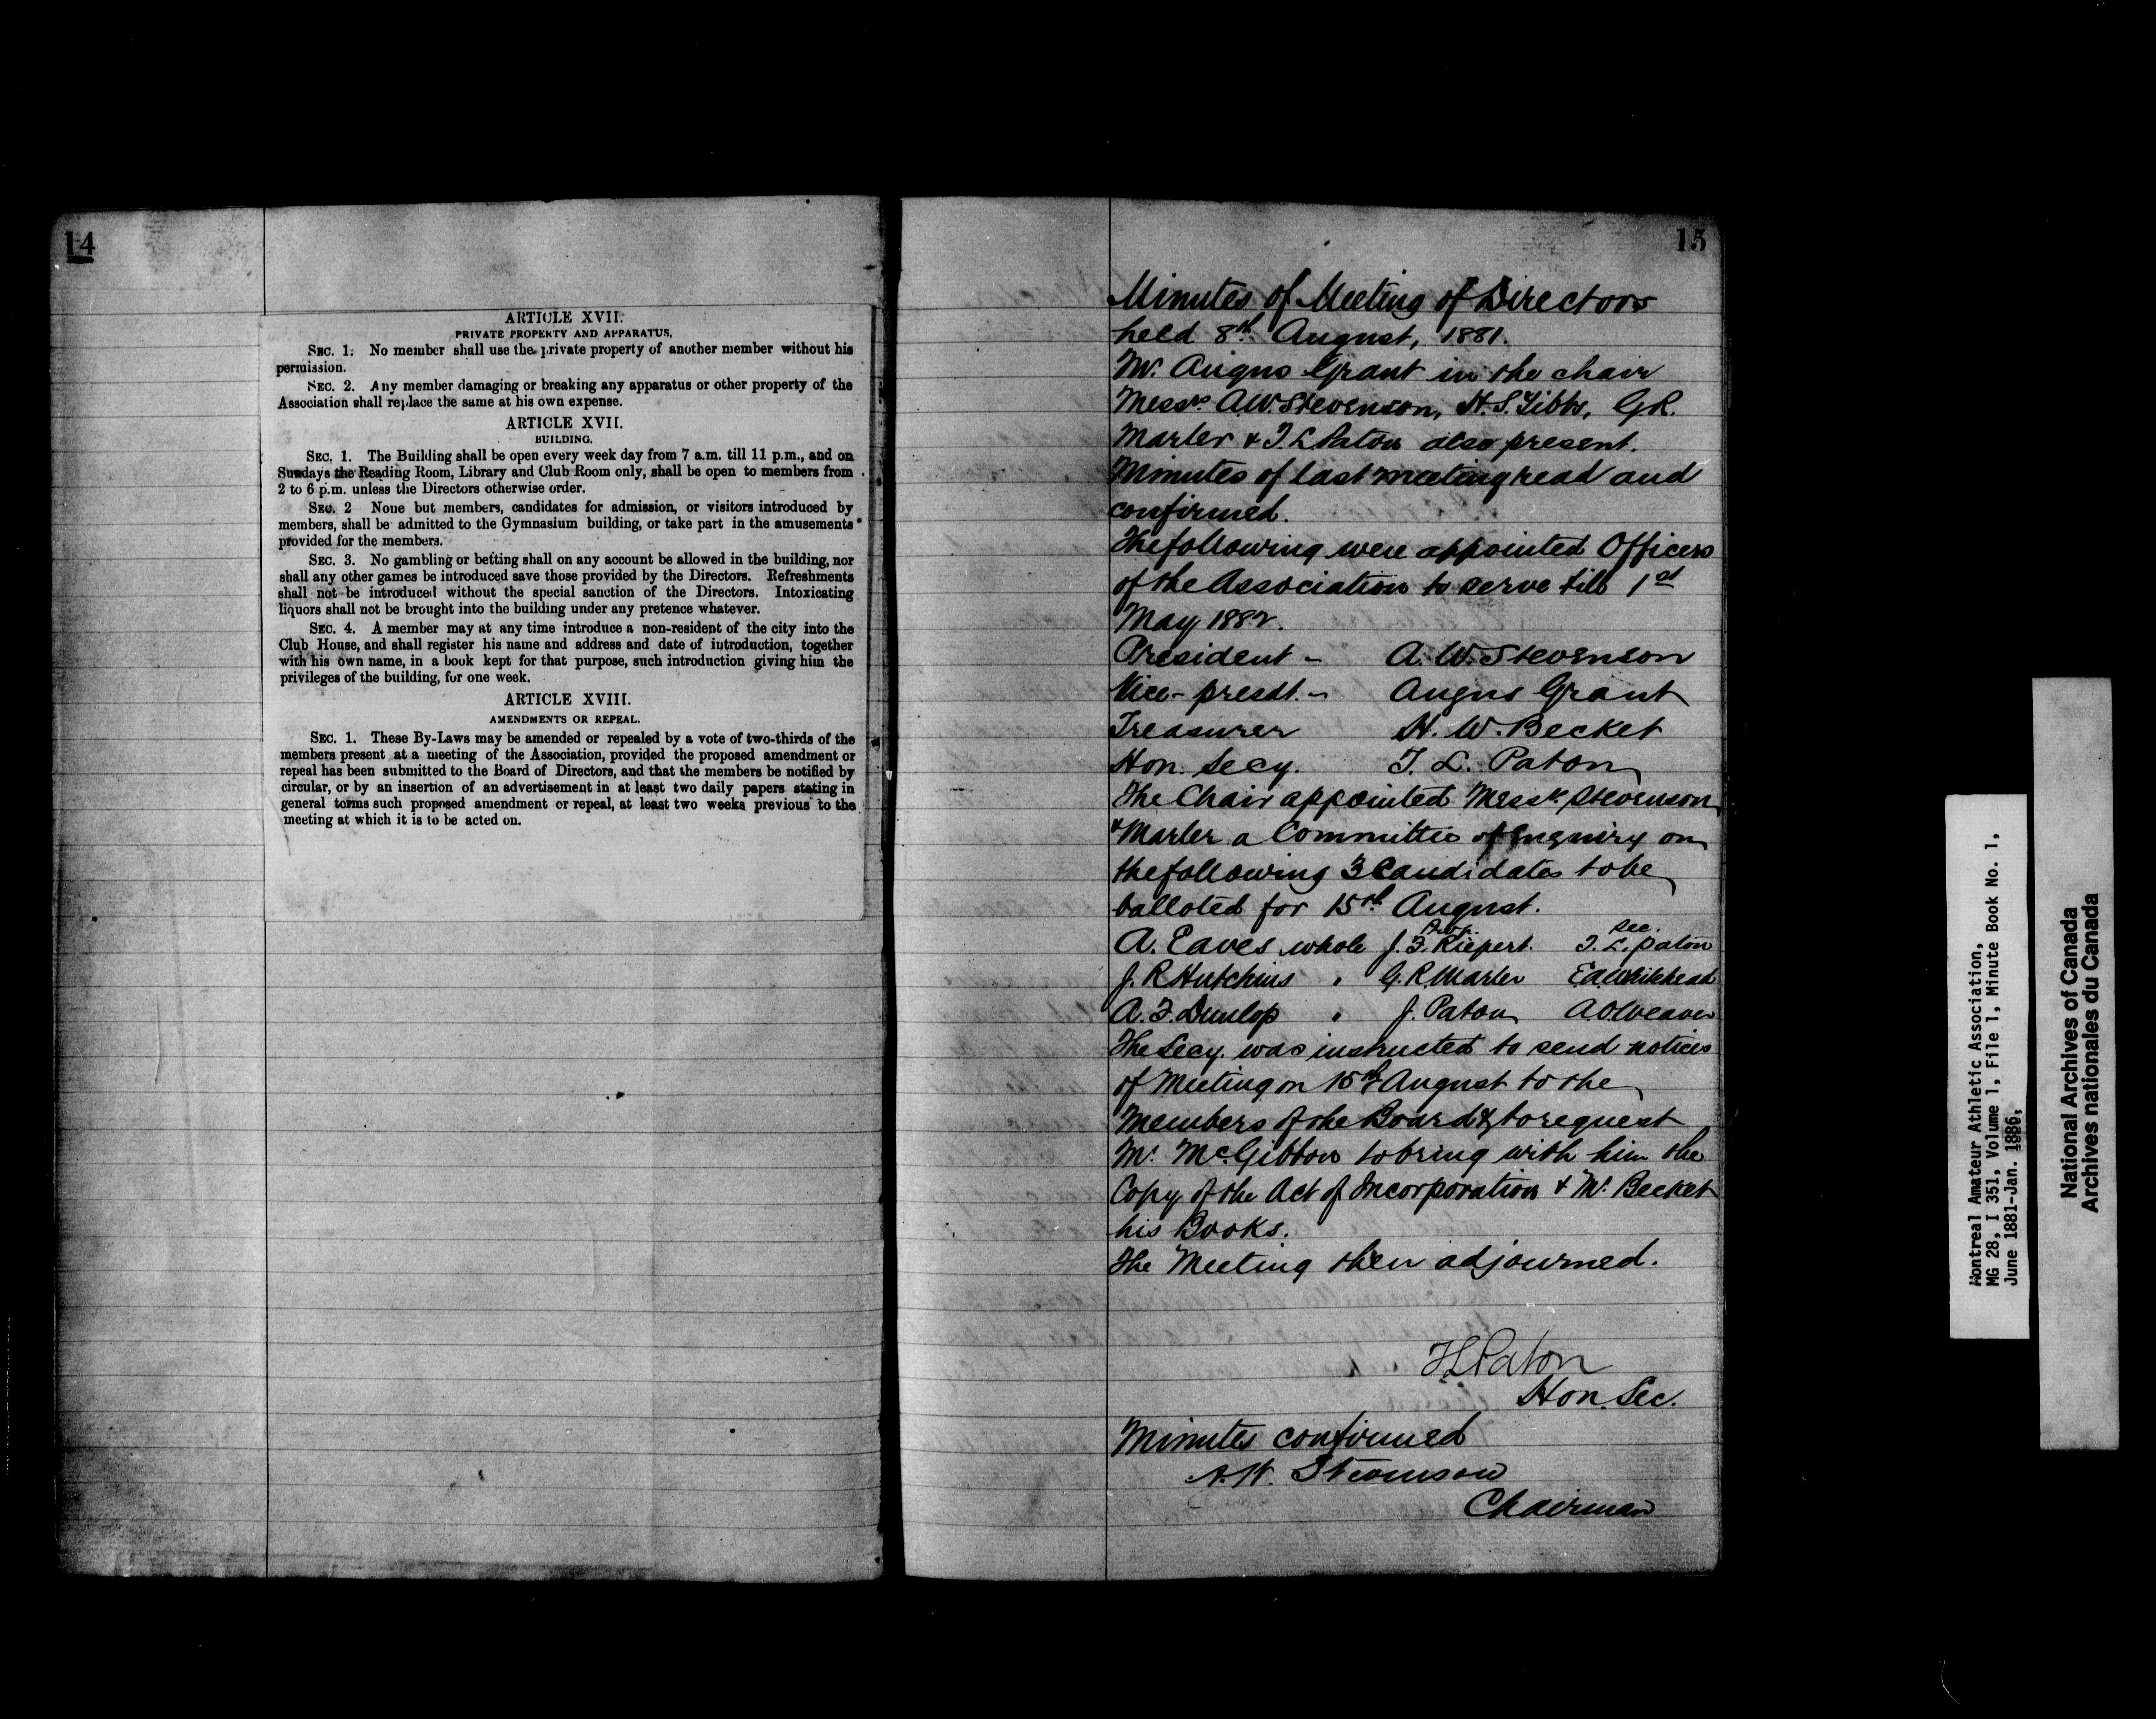 14
ARTICLE XVII.
PRIVATE PROPERTY AND APPARATUS.
SEC. 1. No member shall use the private property of another member without his
permission.
SEC. 2. Any member damaging or breaking any apparatus or other property of the
Association shall replace the same at his own expense.
ARTICLE XVII.
BUILDING.
SEC. 1. The Building shall be open every week day from 7 a.m. till 11 p.m., and on
Sundays the Reading Room, Library and Club Room only, shall be open to members from
2 to 6 p.m. unless the Directors otherwise order.
SEC. 2 None but members, candidates for admission, or visitors introduced by
members, shall be admitted to the Gymnasium building, or take part in the amusements
provided for the members.
SEC. 3. No gambling or betting shall on any account be allowed in the building, nor
shall any other games be introduced save those provided by the Directors. Refreshments
shall not be introduced without the special sanction of the Directors. Intoxicating
liquors shall not be brought into the building under any pretence whatever.
SEC. 4. A member may at any time introduce a non-resident of the city into the
Club House, and shall register his name and address and date of introduction, together
with his own name, in a book kept for that purpose, such introduction giving him the
privileges of the building, for one week.
ARTICLE XVIII.
AMENDMENTS OR REPEAL.
SEC. 1. These By-Laws may be amended or repealed by a vote of two-thirds of the
members present at a meeting of the Association, provided the proposed amendment or
repeal has been submitted to the Board of Directors, and that the members be notified by
circular, or by an insertion of an advertisement in at least two daily papers stating in
general terms such proposed amendment or repeal, at least two weeks previous to the
meeting at which it is to be acted on.
15
Minutes of Meeting of Directors
held 8th August, 1881.
Mr. Angus Grant in the chair
Messrs A.W. Stevenson, H.S. Tibbs, G.R.
Marler & T.L. Paton also present.
Minutes of last meeting read and
confirmed.
The following were appointed Officers
of the Association to serve till 1st
May 1882.
President - A. W. Stevenson
Vice-presdt. - Angus Grant
Treasurer H. W. Becket
Hon. Secy. T. L. Paton
The Chair appointed Messrs. Stevenson
& Marler a Committee of Inquiry on
the following 3 Candidates to be
balloted for 15th August.
Prop. Sec.
A. Eaves whole J. F. Riepert. T. L. Paton
J. R. Hutchins " G. R. Marler E.A. Whitehead
A. F. Dunlop " J. Paton A.O. Weaver
The Secy. was instructed to send notices
of Meeting on 15th August to the
Members of the Board & to request
Mr. McGibbon to bring with him the
Copy of the Act of Incorporation & Mr. Becket
his Books.
The Meeting then adjourned.
T L Paton
Hon. Sec.
Minutes confirmed
A. W. Stevenson
Chairman
Montreal Amateur Athletic Association,
MG 28, I 351, Volume 1, File 1, Minute Book No. 1,
June 1881-Jan. 1886.
National Archives of Canada
Archives nationales du Canada